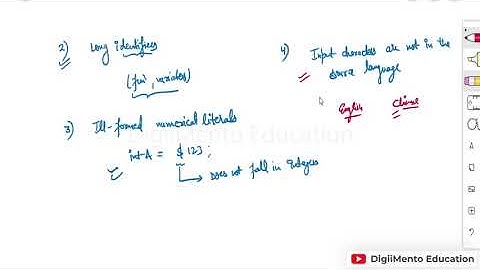 2) Long identifiers
(fun, variables)
3) Ill-formed numerical literals
int A = $123;
Does not fall in integers
4) Input characters are not in the
source language
English Chinese
DigiiMento Education
DigiiMento Education